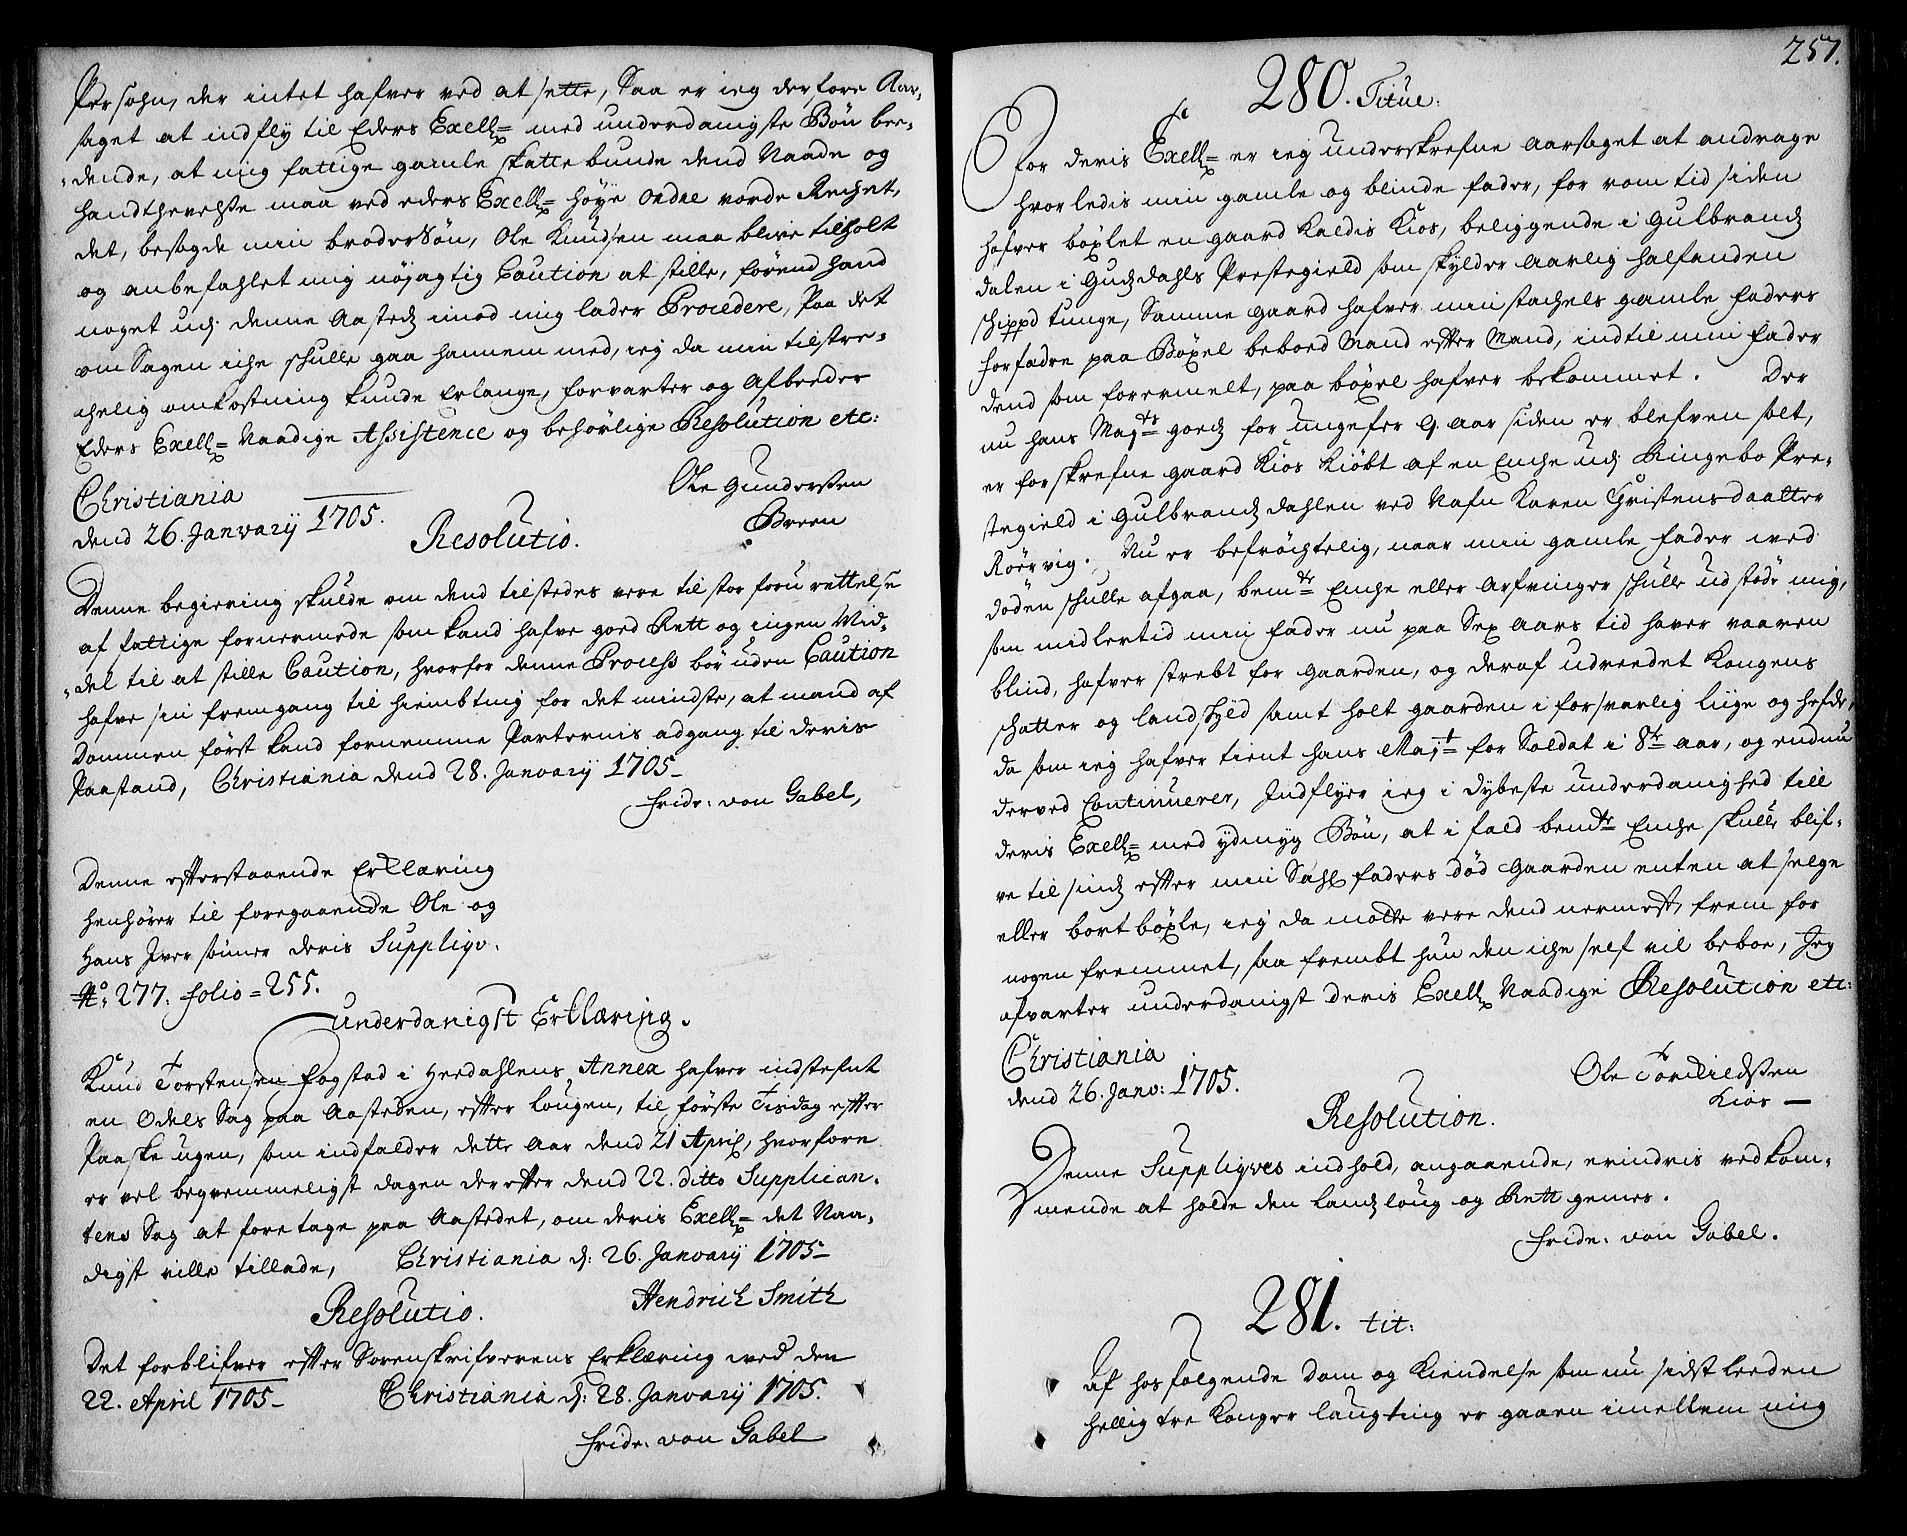 Persohn, der intet hafver ved at sette, Saa er ieg derfore Aar-
saget at indfly til Eders Exell= med underdanigste Bön bee-
-dende, at mig fattige gamle skattebunde dend Naade og
handthevelse maa ved eders Exell= höye Ordre vorde Rechet,
det, besagde min broder Sön, Ole Knudsen maa blive tilholt
og anbefahlet mig nöyagtig Caution at stille, förend hand
noget udj denne Aasteds imod mig lader Procedere, Paa det
om Sagen iche schulle gaa hannem med, ieg da min tilstre-
chelig omkostning kunde Erlange, forvarter og Afbeeder
Eders Exell= Naadige Assistence og behörlige Resolution etc:
Christiania
dend 26. Janvarij 1705.
Ole Gundersen
Breen
Resolutio.
Denne begiering skulde om dend tilstedes vere til stor foruretttelse
af fattige fornermede som kand hafve goed Rett og ingen Mid-
-del til at stille Caution, hvorfor denne Process bör uden Caution
hafve sin fremgang til hiembting for det mindste, at mand af
Dommen först kand fornemme Parternis adgang til deris
Paastand, Christiania dend 28. Janvarij 1705-
Fridr: von Gabel,
Denne efterstaaende Erklæring
henhörer til foregaaende Ole og
Hans Iver sönner deris Suppliqv.
No: 277. folio = 255.
Underdanigst Erklæring.
Knud Torstensen Fogstad i Hedahlens Annex hafver indstefnt
en Odels Sag paa Aasteden, efter Lougen, til förste Tisdag efter
Paaske ugen, som indfalder dette Aar dend 21 April, hvorfore
er vel beqvemmeligst dagen derefter dend 22. ditto Supplican-
tens Sag at foretage paa Aastedet, om deris Exell= det Naa-
digst ville tillade, Christiania d: 26. Janvarij 1705-
Hendrich Smith
Resolutio.
Det forblifver efter Sorenskrifverens Erklæring med den
22. April 1705- Christiania d: 28. Janvarij 1705.
Fridr: von Gabel
257.
280. Titul:
For deris Exell= er ieg underskrefne aarsaget at andrage
hvorledis min gamle og blinde fader, for rom tid siden
hafver böxlet en gaard kaldis Kios, beliggende i Gulbrands
dalen i Gudsdahls Prestegield som skylder Aarlig halfanden
schippd tunge, Samme gaard hafver min stachels gamle faders
forfædre paa Böxel beboed Mand efter Mand, indtil min fader
dend som forermelt, paa böxel hafver bekommet. Der
nu hans Majts goeds for ungefer 9 aar siden er blefven solt,
er forskrefne gaard Kios Kiöbt af en Enche udj Ringebo Pre-
stegield i Gulbrandsdahlen ved Nafn Karen Christensdaatter
Röervig. Nu er befröchtelig, naar min gamle fader ved
döden schulle afgaa, bemte Enche eller Arfvinger schulle udstöde mig,
som midlertid min fader nu paa Sex Aars tid haver vaaren
blind, hafver strebt for gaarden, og deraf udreedet Kongens
schatter og landskyld samt holt gaarden i forsvarlig liige og hefde,
da som ieg hafver tient hans Majt for Soldat i 8te aar, og endnu
derved Continuerer, Indflyer ieg i dybeste underdanighed till
deris Exell= med ydmyg Bön, at i fald bemte Enche skulle blif-
ve til sinds efter min Sahl faders död gaarden enten at selge
eller bort böxle, ieg da motte vere dend nermest, frem for
nogen fremmet, saa frembt hun den iche self vil beboe, Jeg
afvarter underdanigst deris Exell Naadige Resolution etc:
Christiania
dend 26. Janv: 1705.
Ole Torkildsen
Kios -
Resolution.
Denne Suppliqves indhold, angaaende, erindris vedkom-
mende at holde den Landsloug og Rett gemes.
Fridr: von Gabel.
281. tit:
Af hosfölgende dom og Kiendelse som nu sidst leeden
hellig tre Konger laugting er gaaen imellem mig